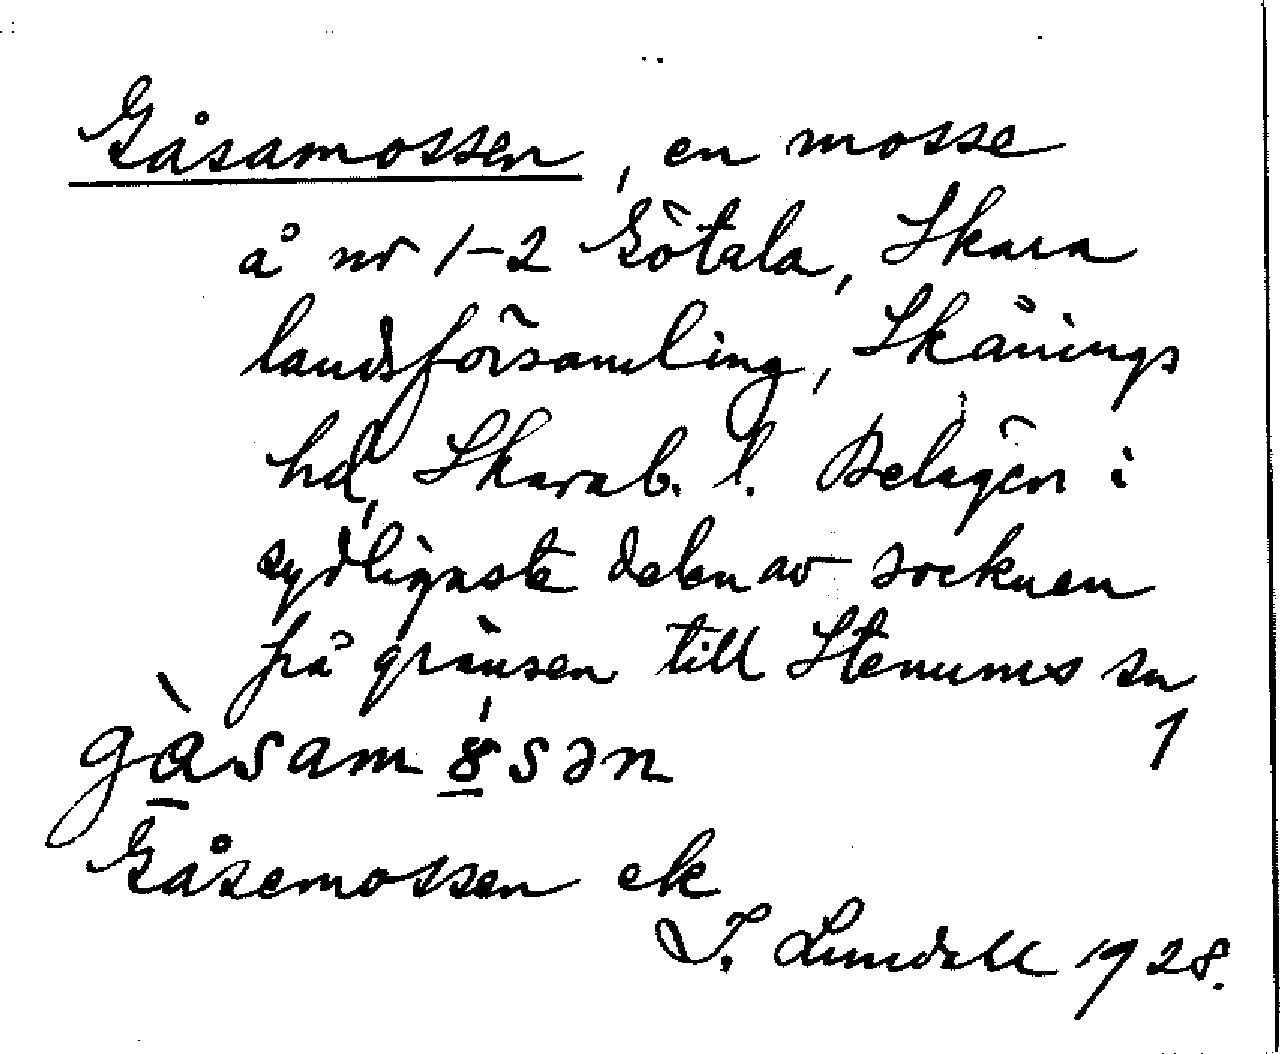 Gåsamossen, en mosse
å nr 1-2 Götala, Skara
landsförsamling, Skånings
hd, Skarab. l. Belägen i
sydligaste delen av socknen
på gränsen till Stenums sn
1
gåsam8sən
Gåsemossen ek
I. Lundahl 1928.